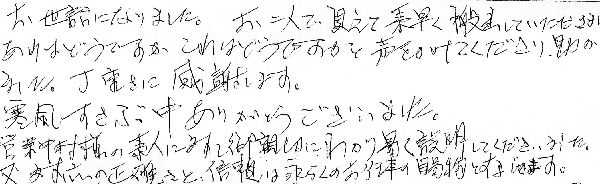 お世話になりました。お二人で見えて素早く搬出していただき
あれはどうですか これはどうですかと声をかけてくださり助か
ました。丁重さに感謝します。
寒風すさぶ中ありがとうございました。
営業中村様の素人にまで御親切にわかり易く説明してくださいました。
又お支払いの正確さと、信頼は永らくのお仕事の賜物と存じます。